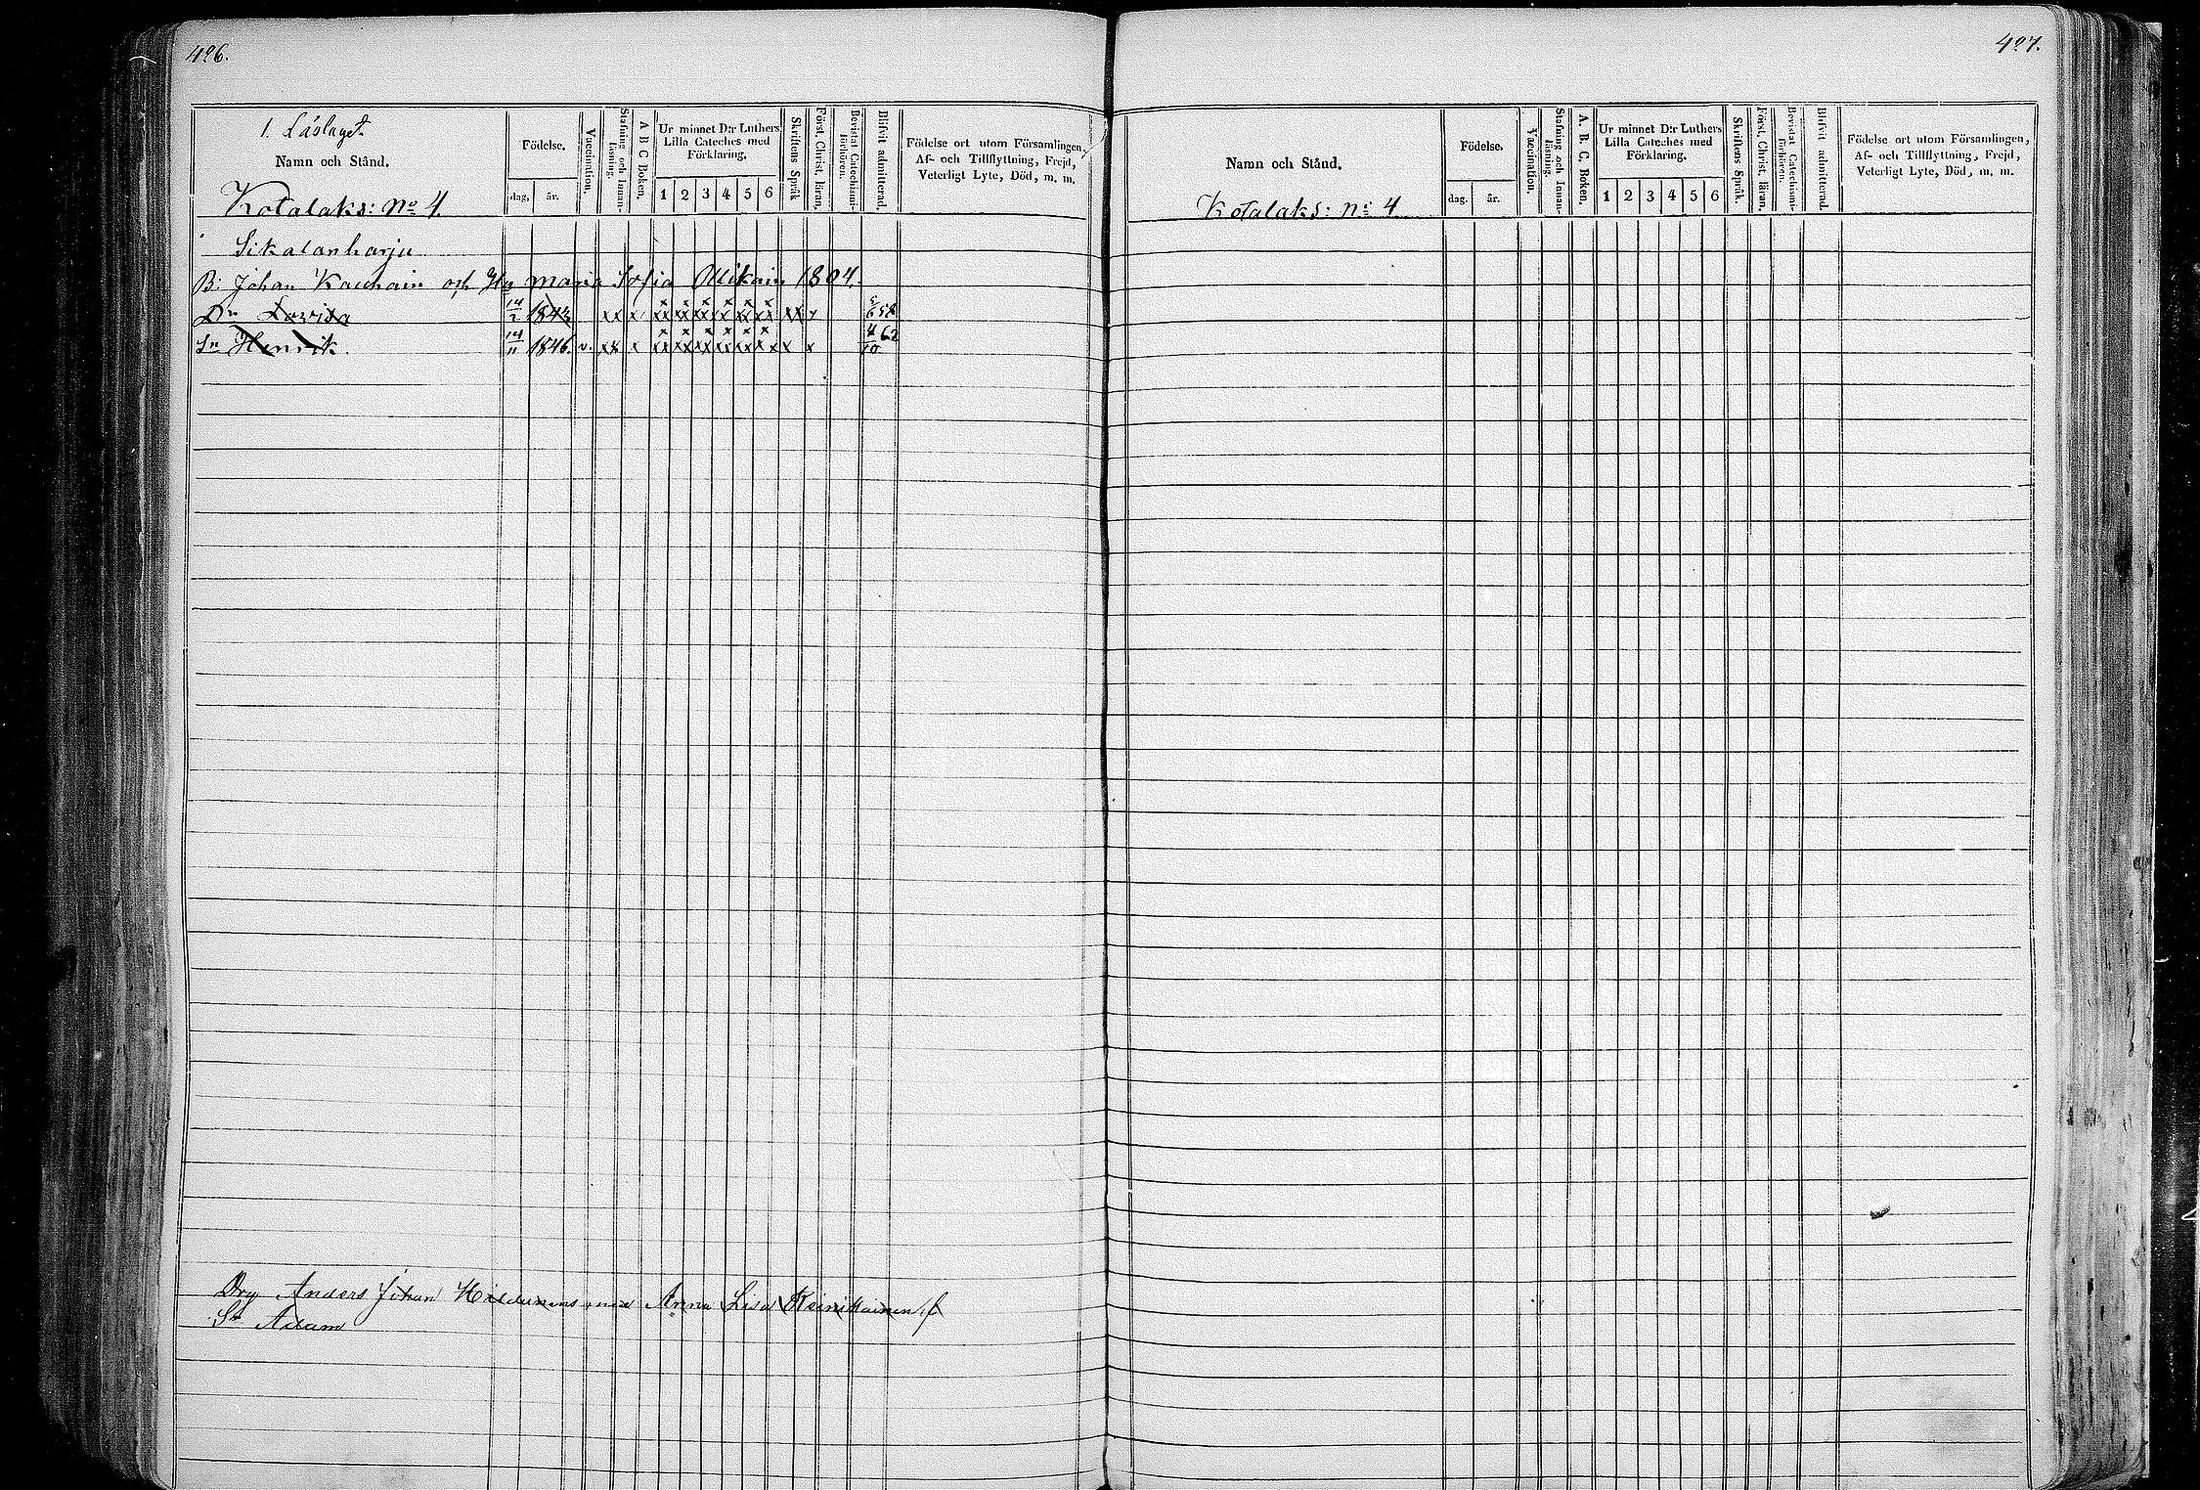 406.
1. Läslaget.
Namn och Stånd.
Födelse.
dag. år.
Vaccination.
Stafning och Innanläsning.
A B C Boken.
Ur minnet D:r Luthers
Lilla Cateches med
Förklaring.
1 2 3 4 5 6
Skriftens Språk
Först. Christ. läran.
Bevistat Catechismi-förhören.
Blifvit admitterad.
Födelse ort utom Församlingen,
Af- och Tillflyttning, Frejd,
Veterligt Lyte, Död, m. m.
Kotalaks: No 4.
Sikalanharju
B: Johan Kauhain och Hu Maria Sofia Mikain 1804.
Dr Lovisa 14/2 1843 xx x xx xx xx x xx xx xx x 58
Sn Henrik. 14/11 1846. v. xx x xx xx xx xx xx xx x x 4/10 62
Drg Anders Johan Hildunens med Anna Lisa Reinikainen f
Sn Adam
407.
Namn och Stånd.
Födelse.
dag. år.
Vaccination.
Stafning och Innanläsning.
A. B. C. Boken.
Ur minnet D:r Luthers
Lilla Cateches med
Förklaring.
1 2 3 4 5 6
Skriftens Språk.
Först. Christ. läran.
Bevistat Catechismi-förhören.
Blifvit admitterad.
Födelse ort utom Församlingen,
Af- och Tillflyttning, Frejd,
Veterligt Lyte, Död, m. m.
Kotalaks: No 4